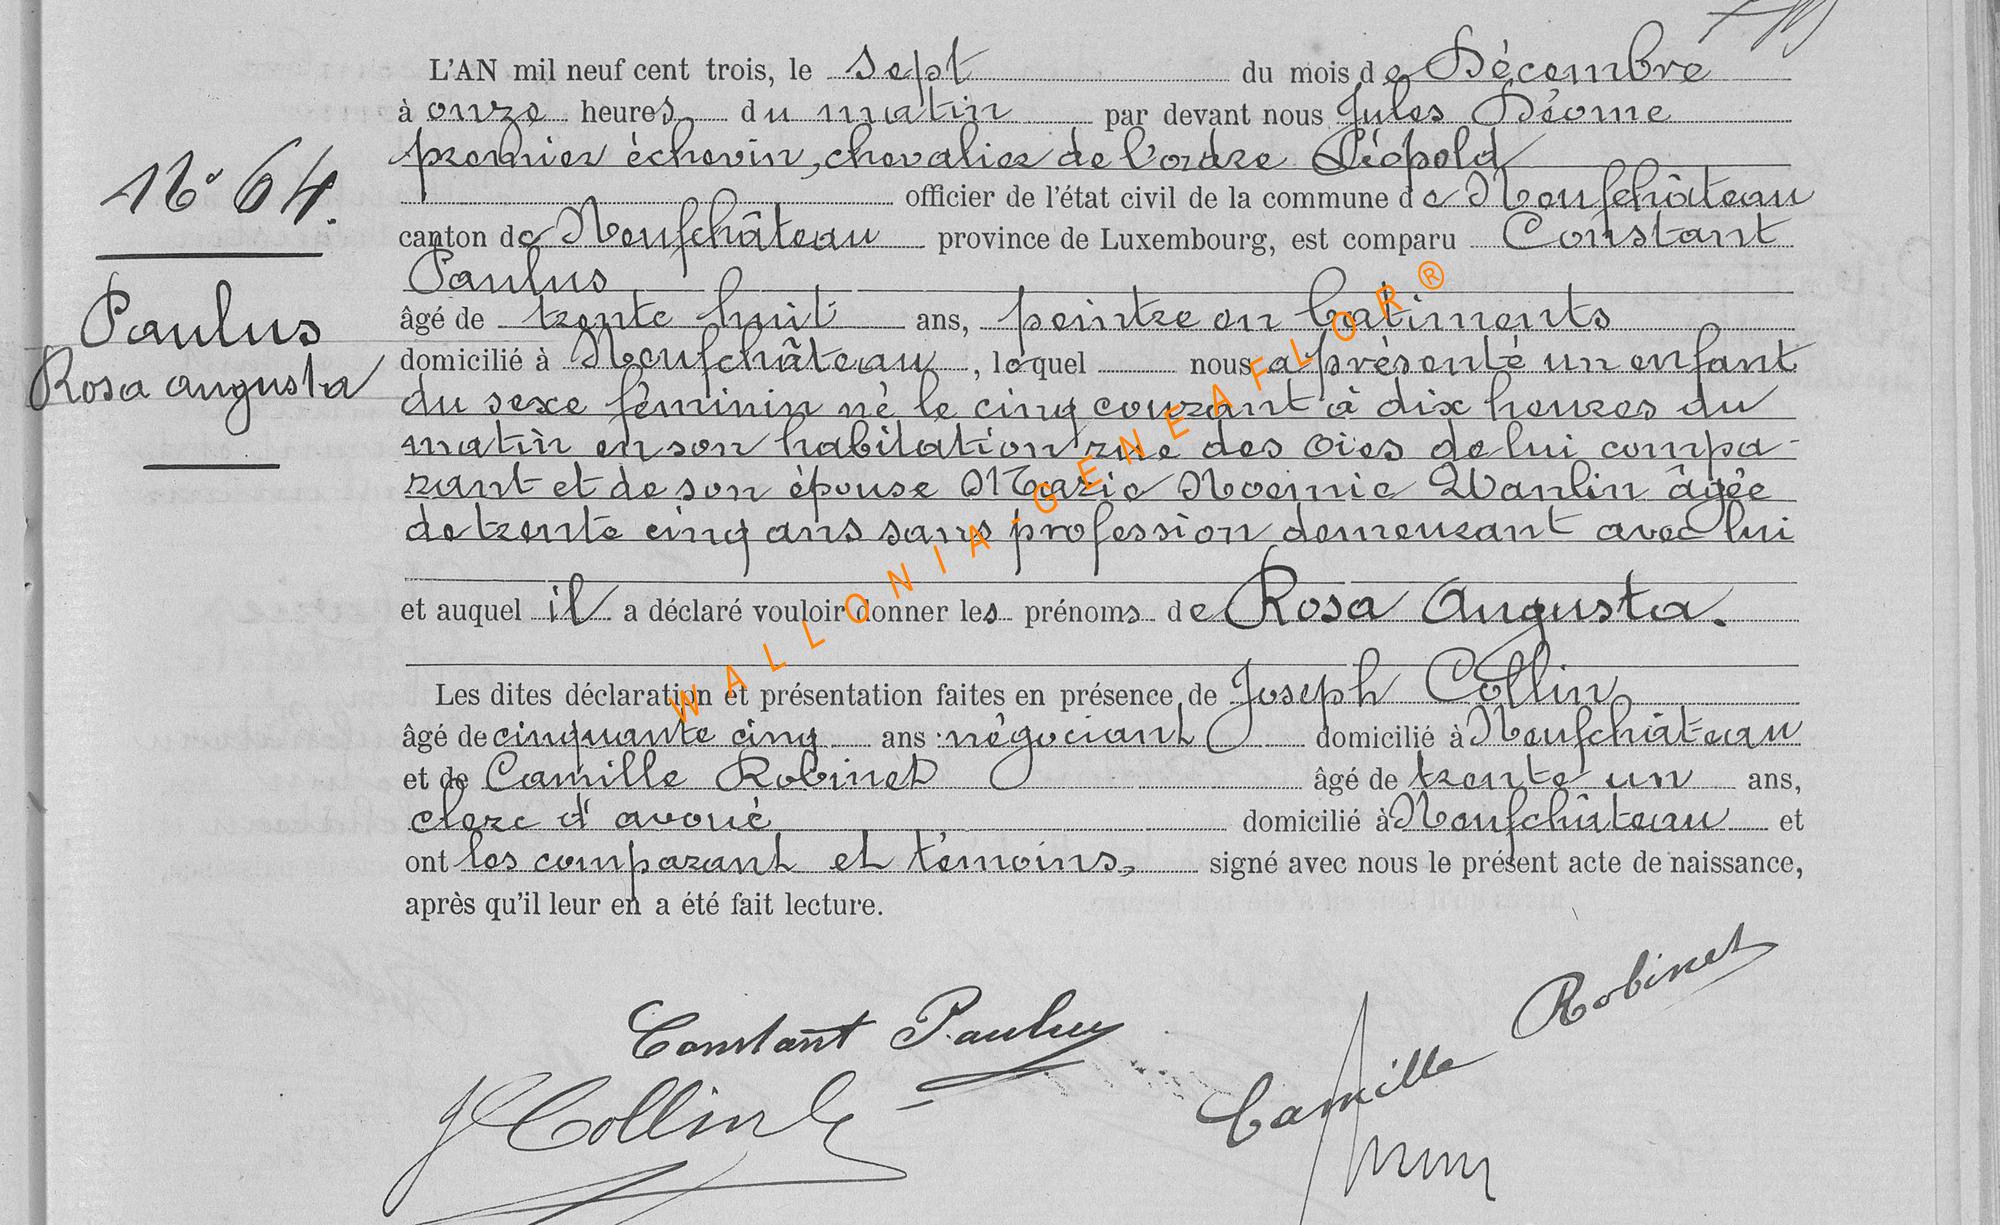 L'AN mil neuf cent trois, le sept du mois de Décembre
à onze heures du matin par devant nous Jules Déome
premier échevin, chevalier de l'ordre Léopold
officier de l'état civil de la commune de Neufchâteau
canton de Neufchâteau province de Luxembourg, est comparu Constant
Paulus
âgé de trente huit ans, peintre en batiments
domicilié à Neufchâteau, lequel nous a présenté un enfant
du sexe féminin né le cinq courant à dix heures du
matin en son habitation rue des Oies de lui compa-
rant et de son épouse Marie Noemie Wanlin âgée
de trente cinq ans sans profession demeurant avec lui
et auquel il a déclaré vouloir donner les prénoms de Rosa Augusta.
Les dites déclaration et présentation faites en présence de Joseph Collin
âgé de cinquante cinq ans négociant domicilié à Neufchâteau
et de Camille Robinet âgé de trente un ans,
clerc d'avoué domicilié à Neufchâteau et
ont les comparant et témoins, signé avec nous le présent acte de naissance,
après qu'il leur en a été fait lecture.
No 64.
Paulus
Rosa Augusta
WALLONIA-GENEAFLOR ®
Constant Paulus
J Collin
Camille Robinet